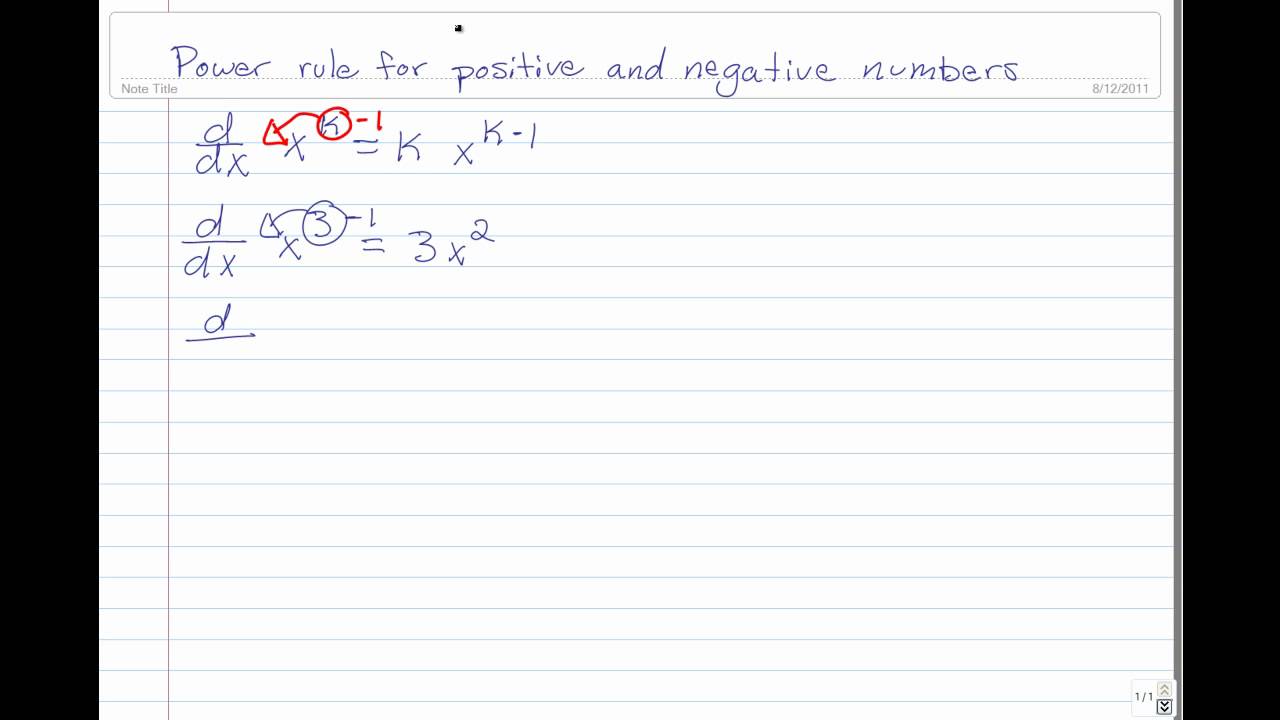 Power rule for positive and negative numbers
Note Title
8/12/2011
d/dx x^k -1 = k x^(k-1)
d/dx x^3 -1 = 3x^2
d
1/1